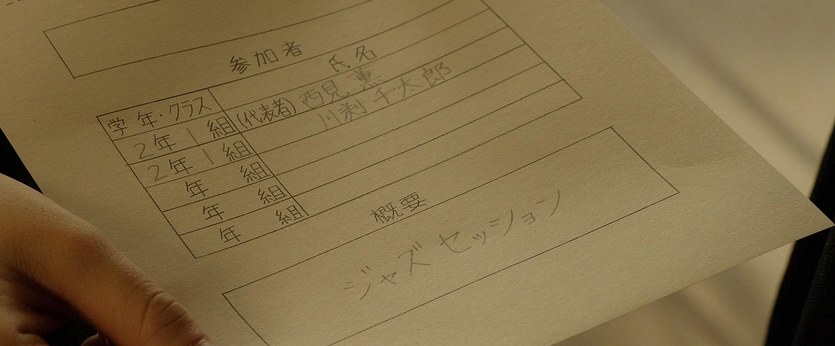 参加者
学年・クラス 氏名
2年1組 (代表者) 西見 薫
2年1組 川渕 千太郎
年 組
年 組
年 組
概要
ジャズ セッション